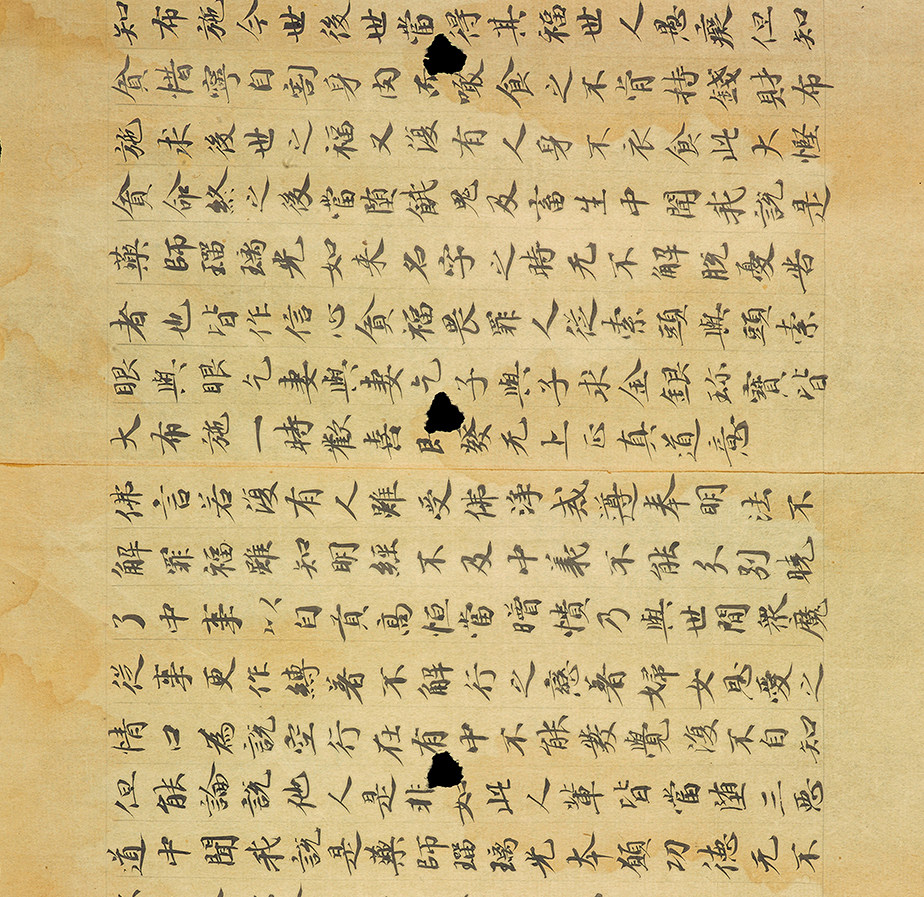 知布施今世後世當得其福世人愚癡但知
貪惜寧自割身肉噉食之不肯持錢財布
施求後世之福又復有人身不衣食此大慳
貪命終之後當堕餓鬼及畜生中聞我說是
藥師瑠璃光如来名字之時无不解脫憂苦
者也皆作信心貪福畏罪人從索頭與頭索
眼與眼乞妻與妻乞子與子求金銀珎寶皆
大布施一時歡喜即發无上正真道意
佛言若復有人雖受佛淨戒遵奉明法不
解罪福雖知明經不及中義不能分別曉
了中事以自貢高恒當憒乃與世間衆魔
從事更作縛著不解行之戀著婦女恩愛之
情口為說空行在有中不能發覺復不自知
但能論說他人是非如此人輩皆當堕三惡
道中聞我說是藥師瑠璃光本願功德无不